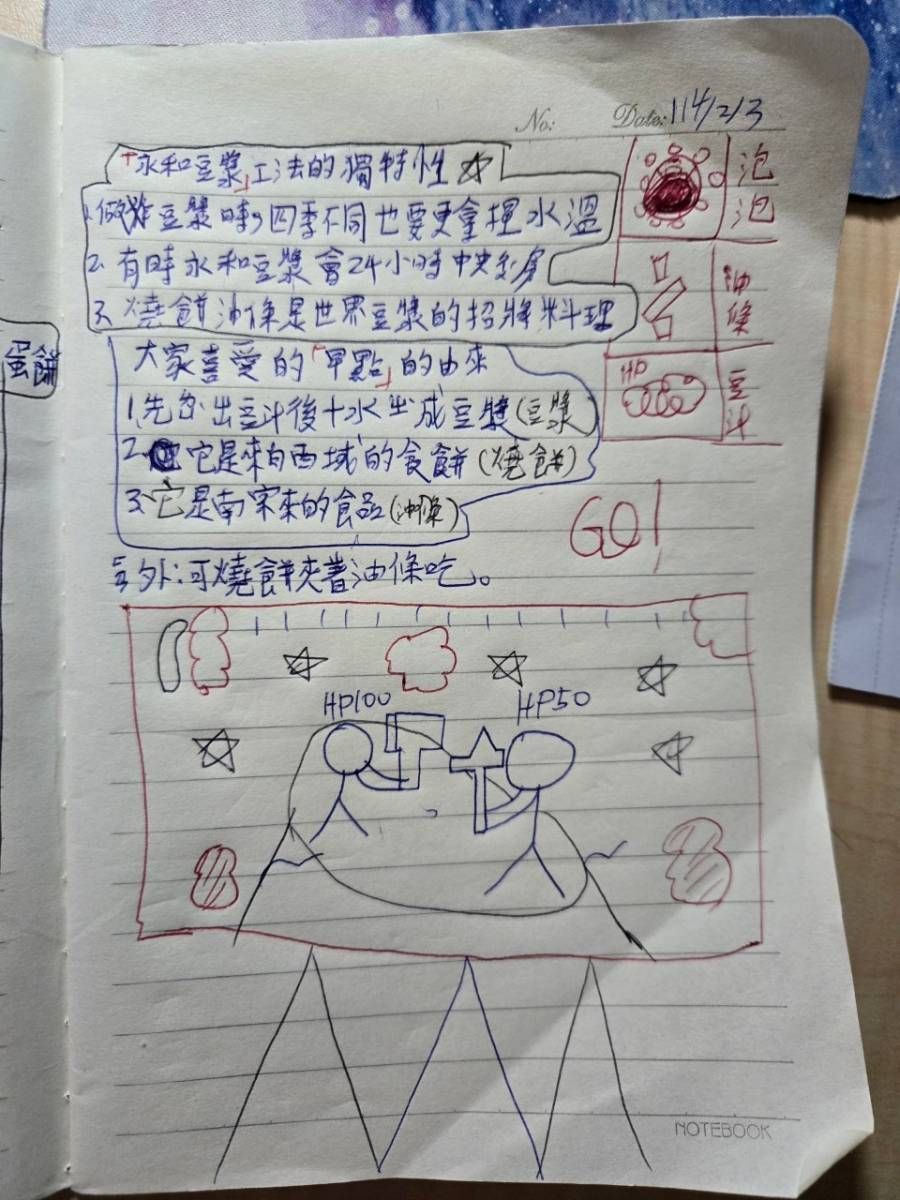 No:
Date: 114/2/3
「永和豆漿」工法的獨特性
1.做豆漿時,四季不同也要更拿捏水溫
2.有時永和豆漿會24小時中央
3.燒餅油條是世界豆漿的招牌料理
大家喜愛的「早點」的由來
1.先 出豆斗後十水 成豆漿(豆漿)
2.它是來自西域的食餅(燒餅)
3.它是南宋來的食品(油條)
另外:可燒餅夾著油條吃。
泡泡
油條
HP
豆斗
GO!
蛋餅
HP100
HP50
NOTEBOOK